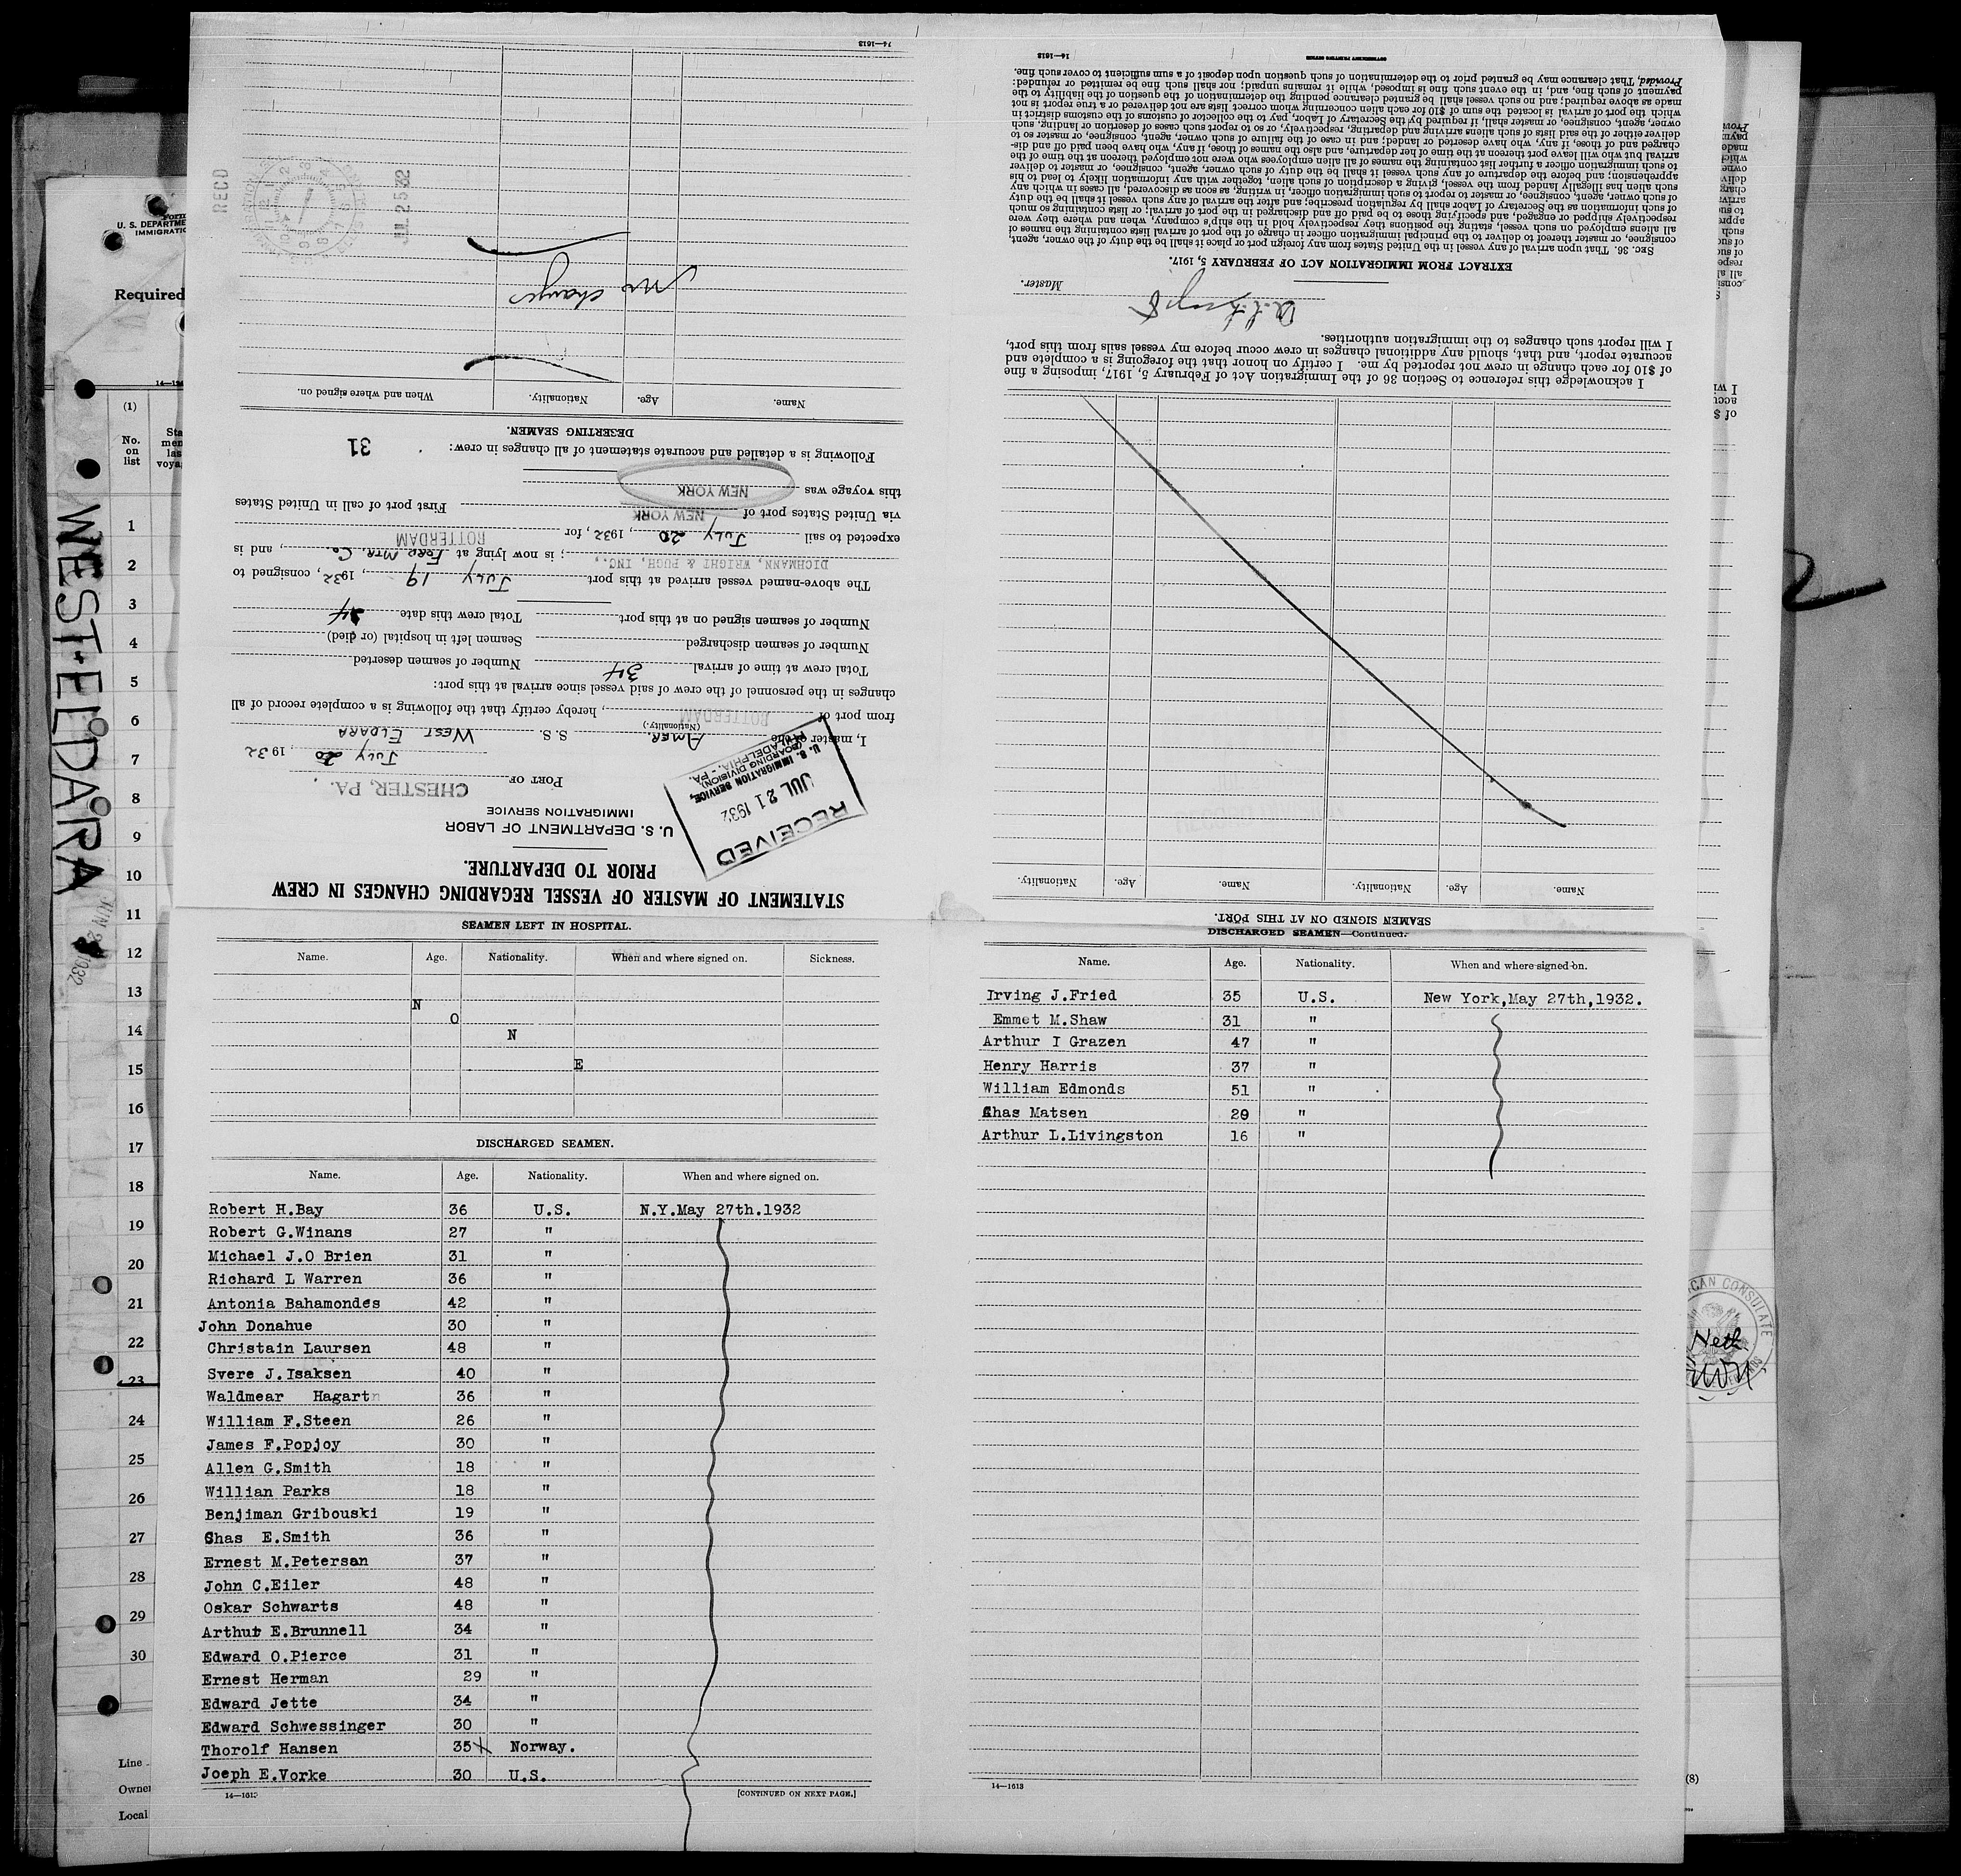 WEST ELDARA
JUN 2 1932
Form
U. S. DEPARTME
IMMIGRATIO
Required
(1)
No. on list
1
2
3
4
5
6
7
8
9
10
11
12
13
14
15
16
17
18
19
20
21
22
23
24
25
26
27
28
29
30
Line
Owner
Local
STATEMENT OF MASTER OF VESSEL REGARDING CHANGES IN CREW
PRIOR TO DEPARTURE.
U. S. DEPARTMENT OF LABOR
IMMIGRATION SERVICE
RECEIVED
JUL 21 1932
U. S. IMMIGRATION SERVICE,
(BOARDING DIVISION)
PHILADELPHIA, PA.
PORT OF CHESTER, PA.
JULY 20, 1932
I, master of the AMER. S. S. WEST ELDARA
(Nationality.)
from port of ROTTERDAM, hereby certify that the following is a complete record of all
changes in the personnel of the crew of said vessel since arrival at this port:
Total crew at time of arrival 34 Number of seamen deserted
Number of seamen discharged Seamen left in hospital (or died)
Number of seamen signed on at this port Total crew this date 34
The above-named vessel arrived at this port JULY 19, 1932, consigned to
DICHMANN, WRIGHT & PUGH, INC., ; is now lying at FORD MTR. Co., and is
expected to sail JULY 20, 1932, for ROTTERDAM
via United States port of NEW YORK First port of call in United States
this voyage was NEW YORK
Following is a detailed and accurate statement of all changes in crew: 31
DESERTING SEAMEN.
Name. Age. Nationality. When and where signed on.
No changes
RECD
JUL 25 32
14—1613
SEAMEN SIGNED ON AT THIS PORT.
Name. Age. Nationality. Name. Age. Nationality.
I acknowledge this reference to Section 36 of the Immigration Act of February 5, 1917, imposing a fine
of $10 for each change in crew not reported by me. I certify on honor that the foregoing is a complete and
accurate report, and that, should any additional changes in crew occur before my vessel sails from this port,
I will report such changes to the immigration authorities.
Master.
EXTRACT FROM IMMIGRATION ACT OF FEBRUARY 5, 1917.
SEC. 36. That upon arrival of any vessel in the United States from any foreign port or place it shall be the duty of the owner, agent,
consignee, or master thereof to deliver to the principal immigration officer in charge of the port of arrival lists containing the names of
all aliens employed on such vessel, stating the positions they respectively hold in the ship's company, when and where they were
respectively shipped or engaged, and specifying those to be paid off and discharged in the port of arrival; or lists containing so much
of such information as the Secretary of Labor shall by regulation prescribe; and after the arrival of any such vessel it shall be the duty
of such owner, agent, consignee, or master to report to such immigration officer, in writing, as soon as discovered, all cases in which any
such alien has illegally landed from the vessel, giving a description of such alien, together with any information likely to lead to his
apprehension; and before the departure of any such vessel it shall be the duty of such owner, agent, consignee, or master to deliver
to such immigration officer a further list containing the names of all alien employees who were not employed thereon at the time of the
arrival but who will leave port thereon at the time of her departure, and also the names of those, if any, who have been paid off and dis-
charged and of those, if any, who have deserted or landed; and in case of the failure of such owner, agent, consignee, or master so to
deliver either of the said lists of such aliens arriving and departing, respectively, or so to report such cases of desertion or landing, such
owner, agent, consignee, or master shall, if required by the Secretary of Labor, pay to the collector of customs of the customs district in
which the port of arrival is located the sum of $10 for each alien concerning whom correct lists are not delivered or a true report is not
made as above required; and no such vessel shall be granted clearance pending the determination of the question of the liability to the
payment of such fine, and, in the event such fine is imposed, while it remains unpaid; nor shall such fine be remitted or refunded:
Provided, That clearance may be granted prior to the determination of such question upon deposit of a sum sufficient to cover such fine.
GOVERNMENT PRINTING OFFICE
14—1613
SEAMEN LEFT IN HOSPITAL.
Name. Age. Nationality. When and where signed on. Sickness.
N
O
N
E
DISCHARGED SEAMEN.
Name. Age. Nationality. When and where signed on.
Robert H.Bay 36 U.S. N.Y.May 27th.1932
Robert G.Winans 27 "
Michael J.O Brien 31 "
Richard L Warren 36 "
Antonia Bahamondes 42 "
John Donahue 30 "
Christain Laursen 48 "
Svere J.Isaksen 40 "
Waldmear Hagartn 36 "
William F.Steen 26 "
James F.Popjoy 30 "
Allen G.Smith 18 "
Willian Parks 18 "
Benjiman Gribouski 19 "
Chas E.Smith 36 "
Ernest M.Petersan 37 "
John C.Eiler 48 "
Oskar Schwarts 48 "
Arthur E.Brunnell 34 "
Edward O.Pierce 31 "
Ernest Herman 29 "
Edward Jette 34 "
Edward Schwessinger 30 "
Thorolf Hansen 35 Norway.
Joeph E.Vorke 30 U.S.
14—1613 [CONTINUED ON NEXT PAGE.]
DISCHARGED SEAMEN—Continued.
Name. Age. Nationality. When and where signed on.
Irving J.Fried 35 U.S. New York,May 27th,1932.
Emmet M.Shaw 31 "
Arthur I Grazen 47 "
Henry Harris 37 "
William Edmonds 51 "
Chas Matsen 29 "
Arthur L.Livingston 16 "
14—1613
CAN CONSULATE
Neth.
(8)